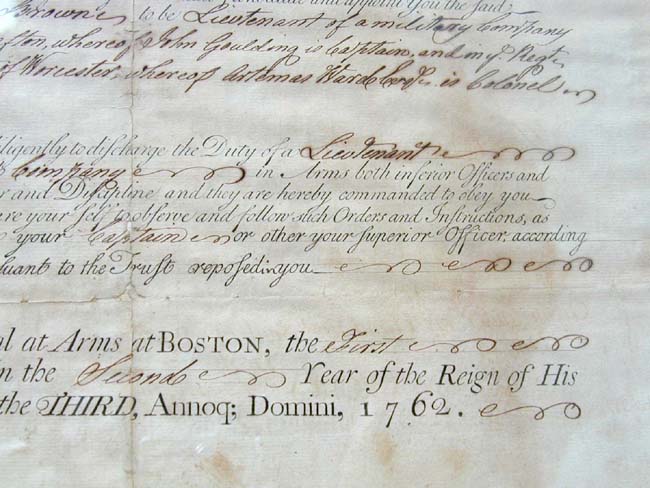 and appoint You the said
Browne to be Lieutenant of a military Company
John Goulding is Captain, and in ye. Regt.
of Worcester, whereof Artemas Ward Esqr. is Colonel
iligently to discharge the Duty of a Lieutenant
Company in Arms both inferior Officers and
r and Discipline and they are hereby commanded to obey you
are your self to observe and follow such Orders and Instructions, as
your Captain or other your superior Officer, according
suant to the Trust reposed in you
al at Arms at BOSTON, the First
n the Second Year of the Reign of His
the THIRD, Annoq; Domini, 1762.